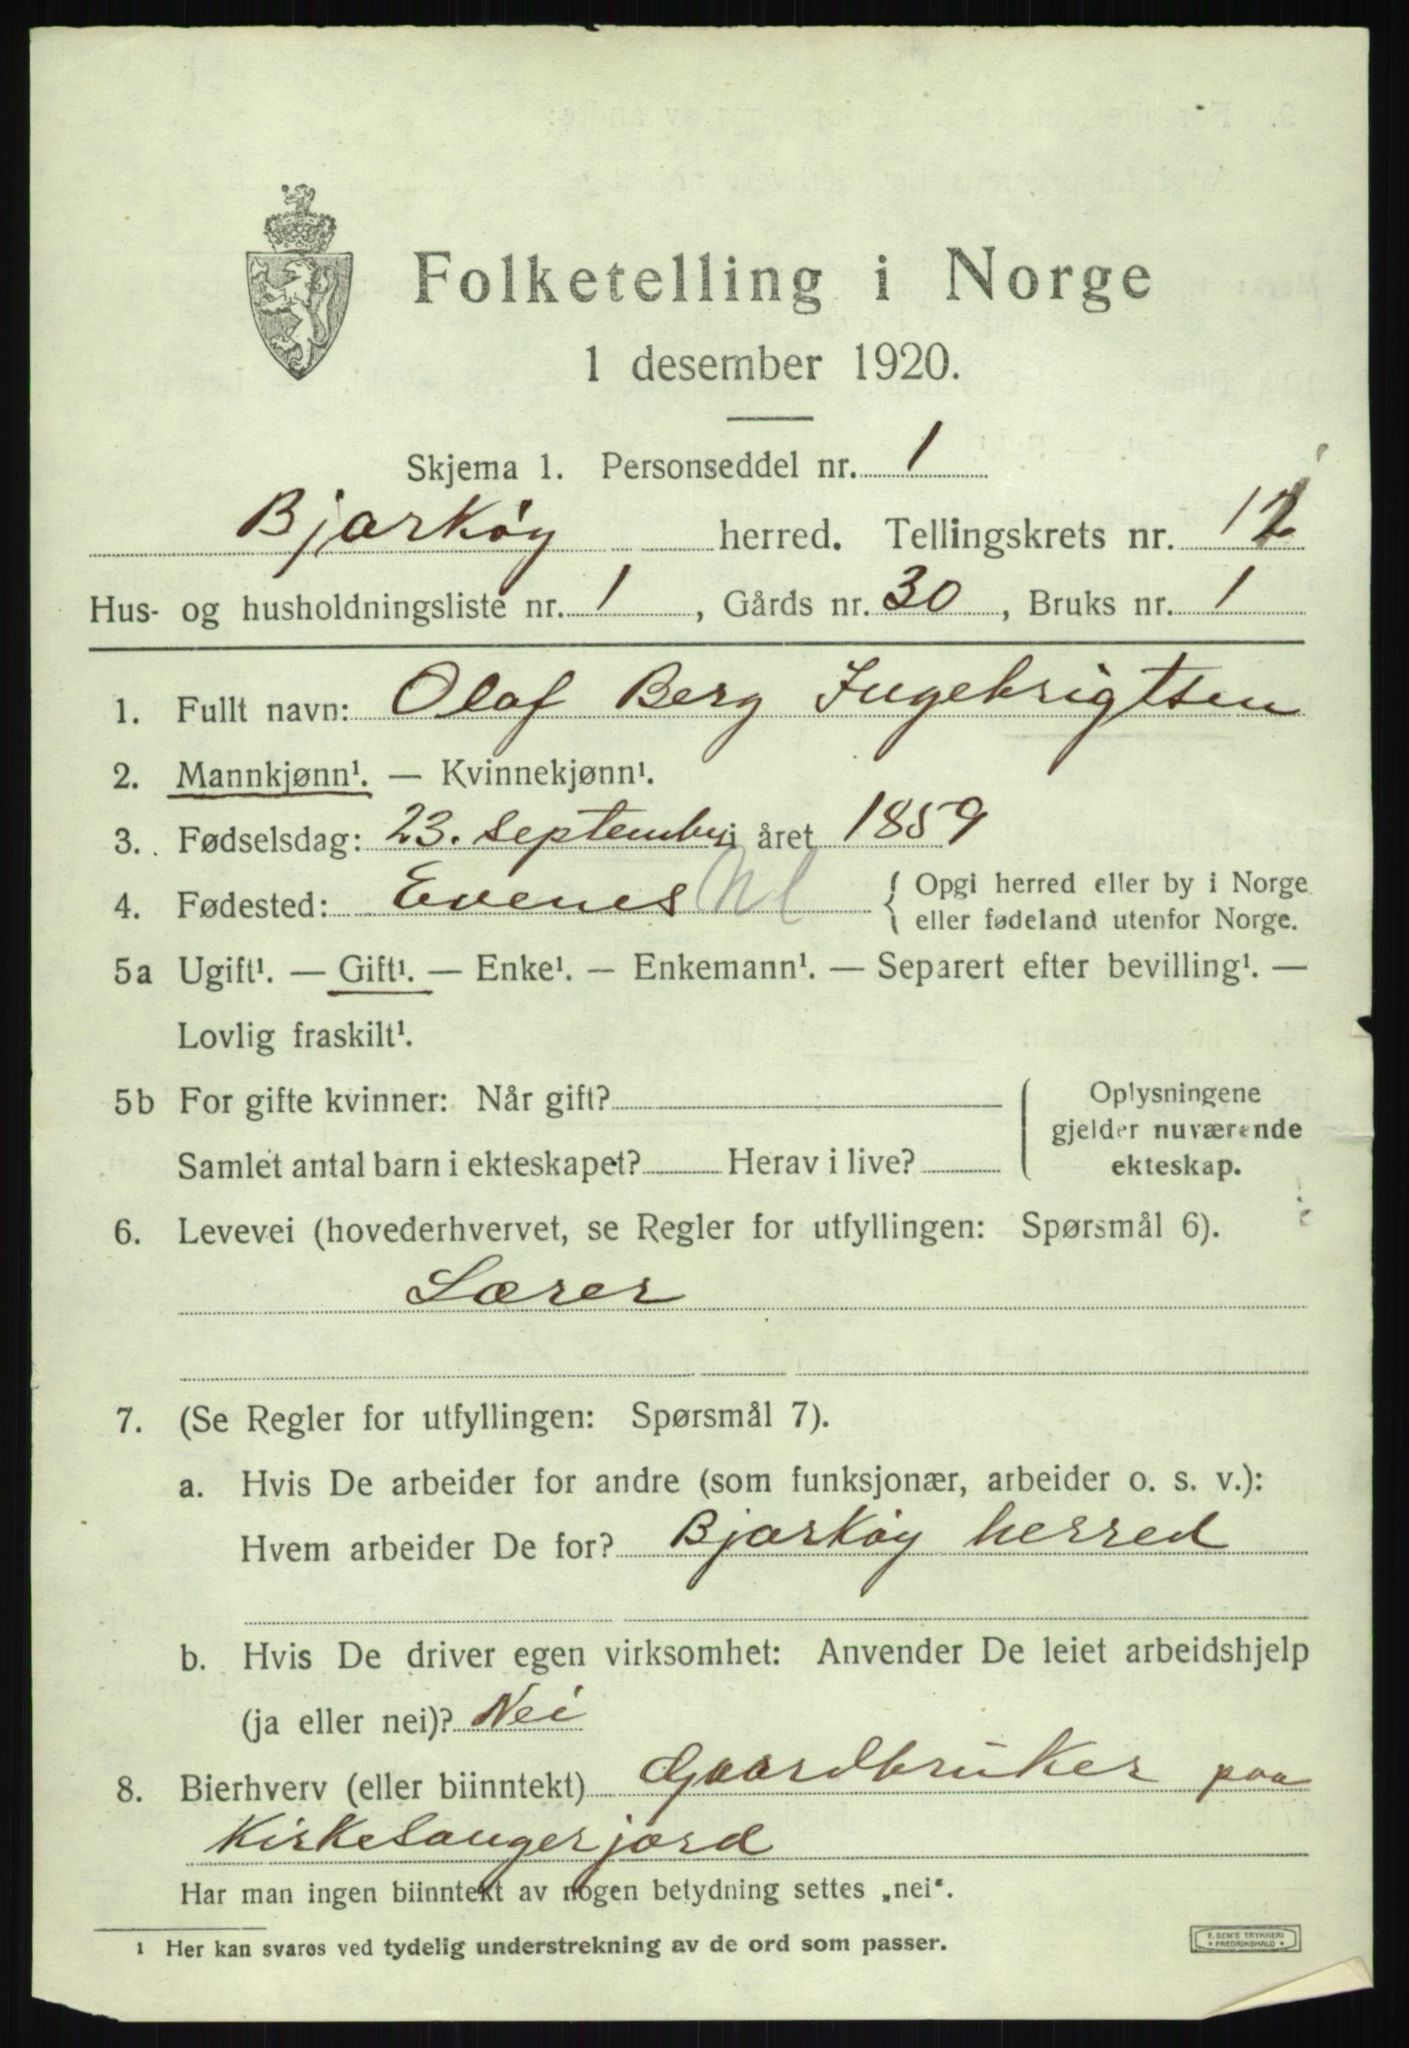 Folketelling i Norge
1 desember 1920.
Skjema 1. Personseddel nr. 1
Bjarkøy herred. Tellingskrets nr. 12
Hus- og husholdningsliste nr. 1, Gårds nr. 30, Bruks nr. 1
1. Fullt navn: Olaf Berg Ingebrigtsen
2. Mannkjønn¹. — Kvinnekjønn¹.
3. Fødselsdag: 23. september i året 1859
4. Fødested: Evenes Nl { Opgi herred eller by i Norge
eller fødeland utenfor Norge.
5a Ugift¹. — Gift¹. — Enke¹. — Enkemann¹. — Separert efter bevilling¹. —
Lovlig fraskilt¹.
5b For gifte kvinner: Når gift? Oplysningene
gjelder nuværende
Samlet antal barn i ekteskapet? Herav i live? ekteskap.
6. Levevei (hovederhvervet, se Regler for utfyllingen: Spørsmål 6).
Lærer
7. (Se Regler for utfyllingen: Spørsmål 7).
a. Hvis De arbeider for andre (som funksjonær, arbeider o. s. v.):
Hvem arbeider De for? Bjarkøy herred
b. Hvis De driver egen virksomhet: Anvender De leiet arbeidshjelp
(ja eller nei)? Nei
8. Bierhverv (eller biinntekt) Gaardbruker paa
Kirkesangerjord
Har man ingen biinntekt av nogen betydning settes „nei“.
¹ Her kan svares ved tydelig understrekning av de ord som passer.
E. SEM'S TRYKKERI
FREDRIKSHALD